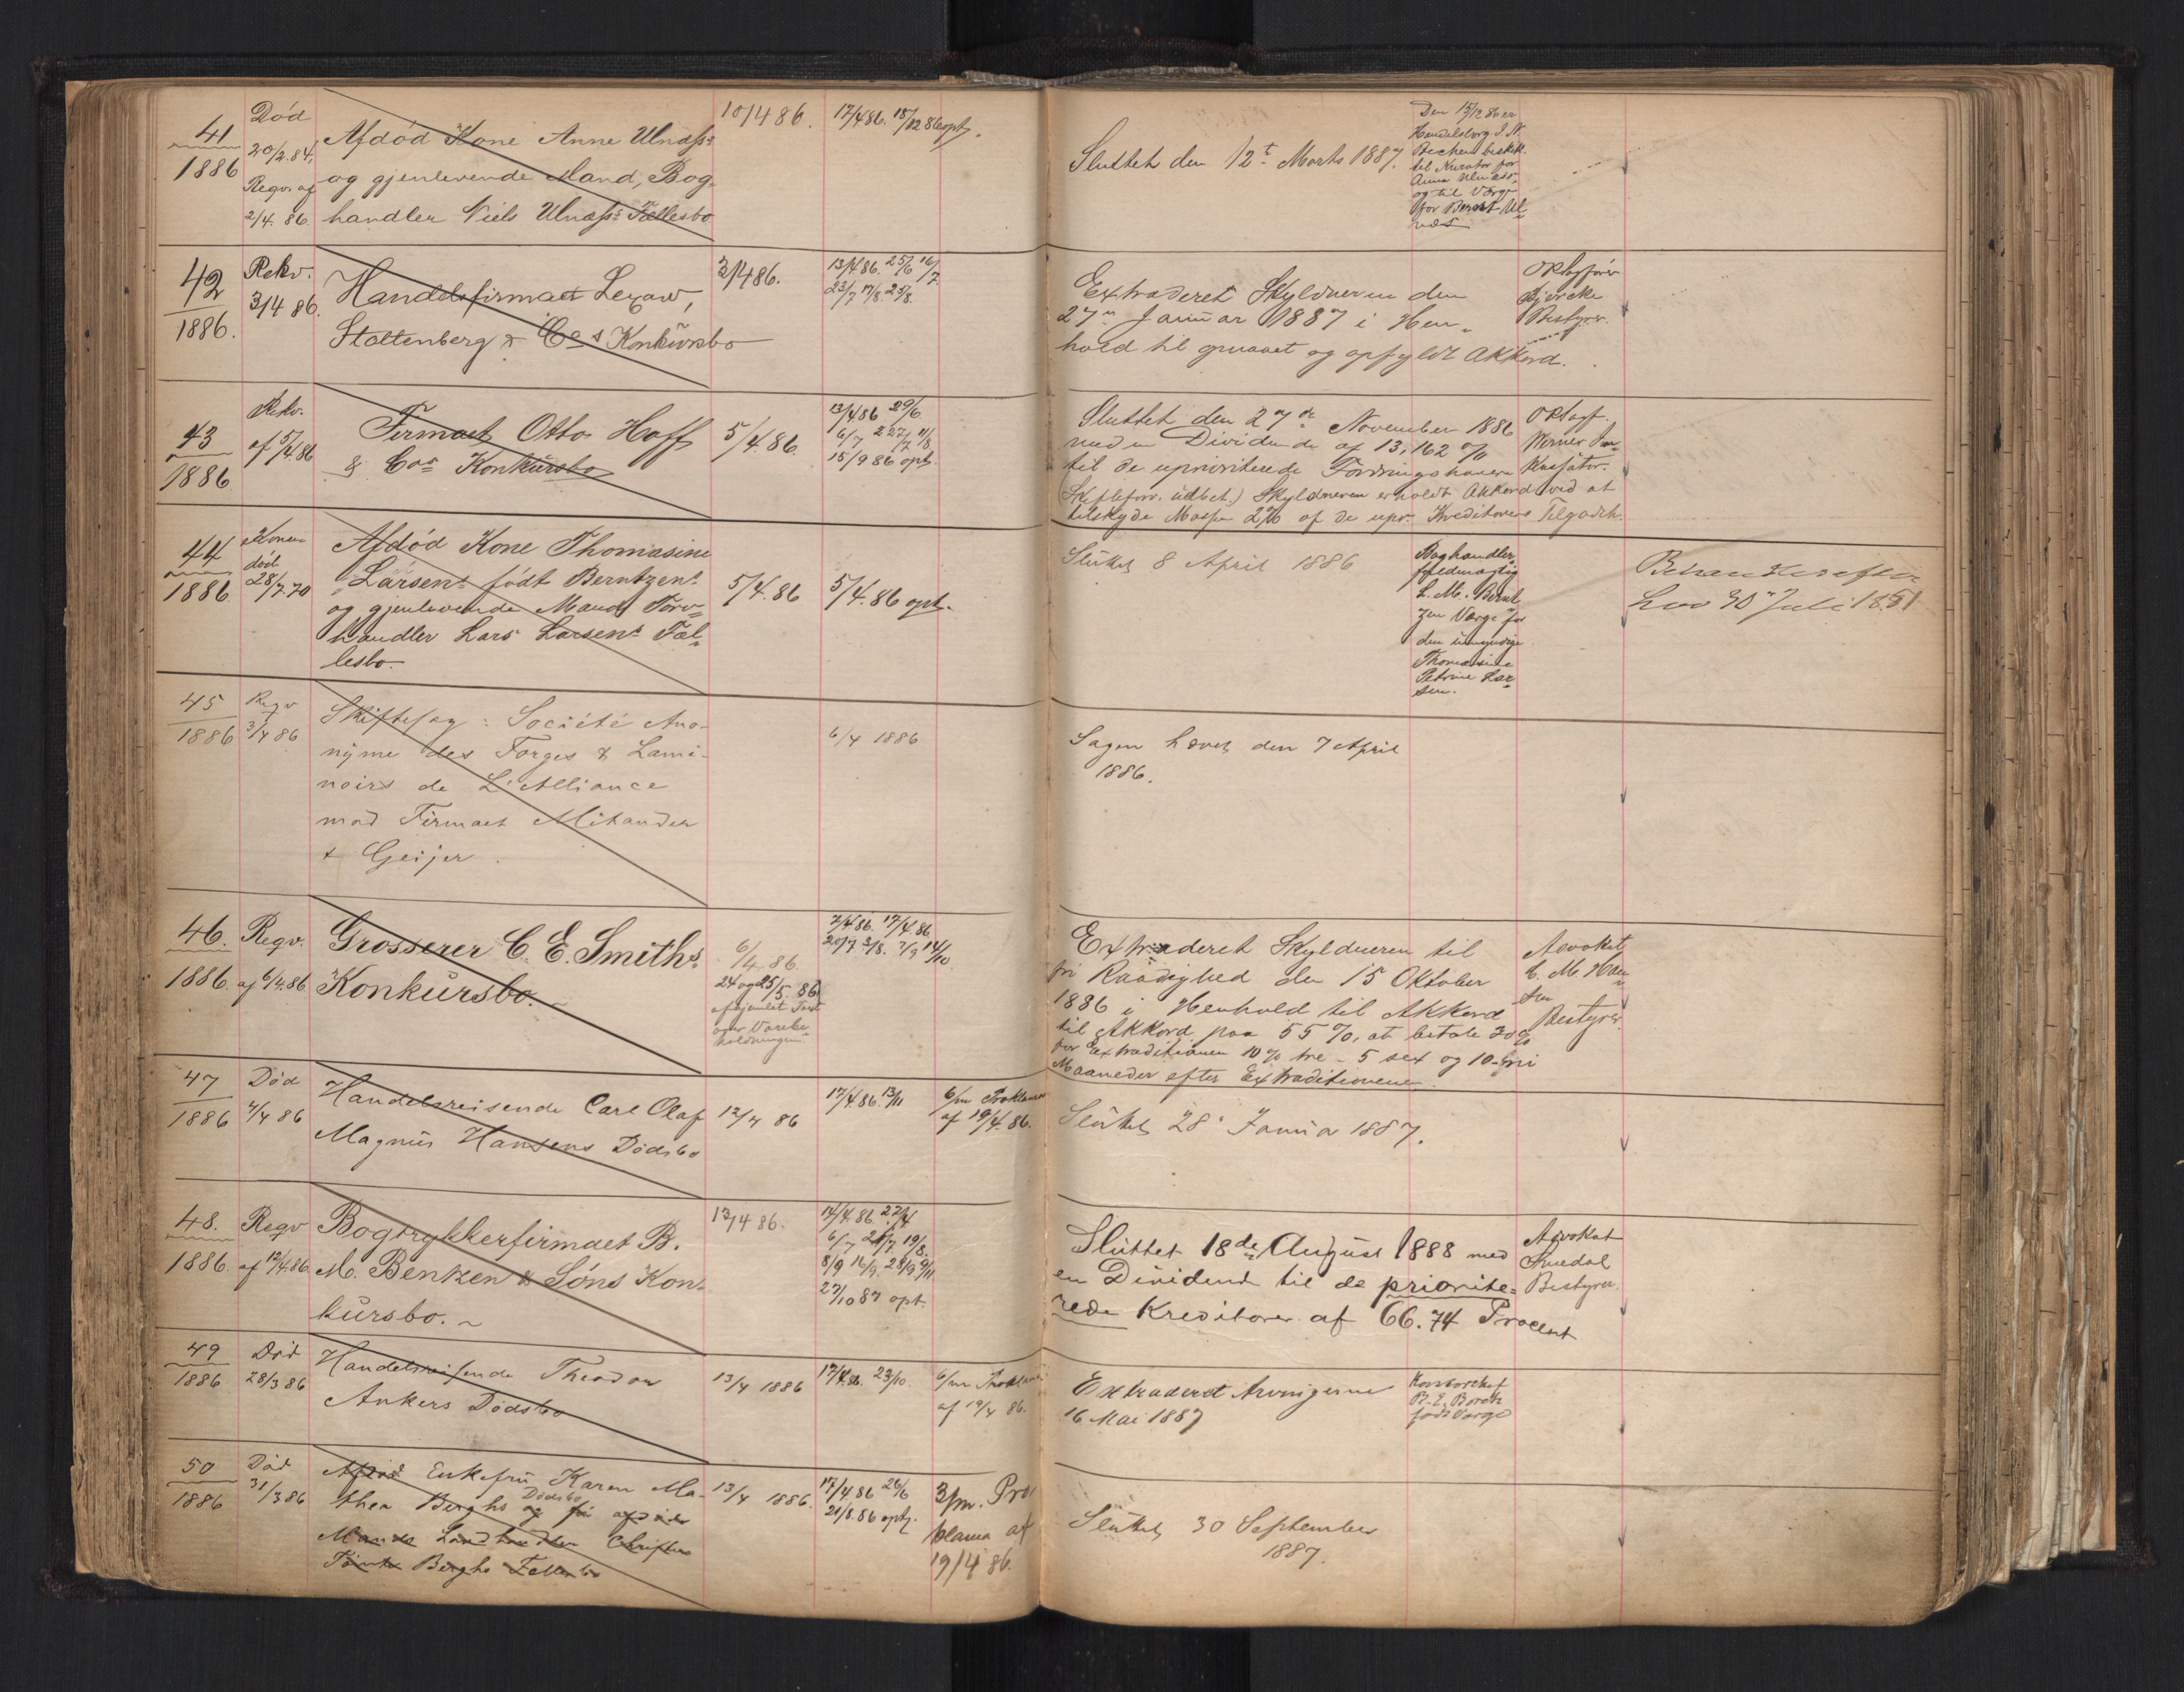 41
1886
Død
20/2.84,
Reqv. af
2/4. 86.
Afdød Kone Anne Ulnæss's
og gjenlevende Mand, Bog-
handler Niels Ulnæss's Fællesbo
10/4 86.
17/4 86. 18/12 86 opt.
Sluttet den 12t Marts 1887.
Den 15/12 86 er
til Kurator for
Anna Ulnæss,
og til Værge
for Berant Ul-
næs
42
1886.
Rekv.
3/4 86.
Handelsfirmaet Lexow,
Stoltenberg & Cos Konkursbo
3/4 86.
13/4 86. 25/6 16/7
23/7 17/8. 25/8.
Extraderet Skyldneren den
27n Januar 1887 i Hen-
hold til opnaaet og opfyldt Akkord.
ORsagfører
Bjercke
Bestyrer.
43
1886
Rekv.
af 5/4.86
Firmaet Otto Hoff
& Cos Konkursbo
5/4 86.
13/4 86 29/6
6/7 227/7 11/8
15/9 86 opt.
Sluttet den 27de November 1886
med en Dividende af 13,162 %
til de uprioriterede Fordringshavere
Skifteforv. udbet.) Skyldneren erholdt Akkord ved at
tilskyde Massen 2% af de upr. Kreditorers Tilgodeh.
ORsagf.
Werner
Kassator.
44
1886
Konen
død
28/7.70
Afdød Kone Thomasine
Larsens født Berntzens
og gjenlevende Mand Torv-
handler Lars Larsens Fæl-
lesbo.
5/4.86
5/4.86 opt.
Sluttet 8 April 1886
Boghandler
fuldmægtig
L. M. Bernt
zen Værge for
den umyndige
Thomasine
Petrine Lar
sen.
Behandles efter
Lov 30 Juli 1851
45
1886
Reqv
3/4 86
Skiftesag: Société Ano-
nyme des Forges & Lami-
noirs de L'Alliance
mod Firmaet Mitander
& Geijer.
6/4 1886
Sagen hævet den 7 April
1886.
46.
1886.
Reqv.
af 6/4.86
Grosserer C. E. Smiths
Konkursbo.
6/4 86.
24 og 25/5. 86
afhjemlet Taxt
over Varebe-
holdningen
7/4 86. 17/4.86
20/7 3/8. 7/9 14/10
Extraderet Skyldneren til
fri Raadighed den 15 Oktober
1886 i Henhold til Akkord
til Akkord paa 55 %, at betale 30%
for Extraditionen 10% tre - 5 sex og 10-ni
Maaneder efter Extraditionen.
Advokat
C. M. Han-
sen
Bestyrer.
47
1886
Død
4/4 86
Handelsreisende Carl Olaf
Magnus Hansens Dødsbo
12/4 86
17/4.86. 13/11
6/m Proklama
af 19/4 86.
Sluttet 28' Januar 1887.
48.
1886.
Reqv
af 12/4.86
Bogtrykkerfirmaet B.
M. Bentzen & Søns Kon-
kursbo.
13/4 86.
17/4 86. 27/4
6/7 21/7 19/8.
8/9 16/9. 28/9 9/11
27/10 87 opt.
Sluttet 18de August 1888 med
en Dividende til de priorite-
rede Kreditorer af 66.74 Procent
Advokat
Smedal
Bestyrer.
49
1886
Død
28/3 86
Handelsreisende Theodor
Ankers Dødsbo
13/4 1886
17/4.86. 23/10.
6/m Proklama
af 19/4 86.
Extraderet Arvingerne
16 Mai 1887
Kontorchef
født Værge
50
1886
Død
31/3 86
Afdød Enkefru Karen Ma-
thea Berghs Dødsbo og før afdøde
Mands Landhandler
Berghs Fællesbo
13/4 1886.
17/4.86 26/6
21/8.86 opt.
3/m. Pro
klama af
19/4 86.
Sluttet 30 September
1887.